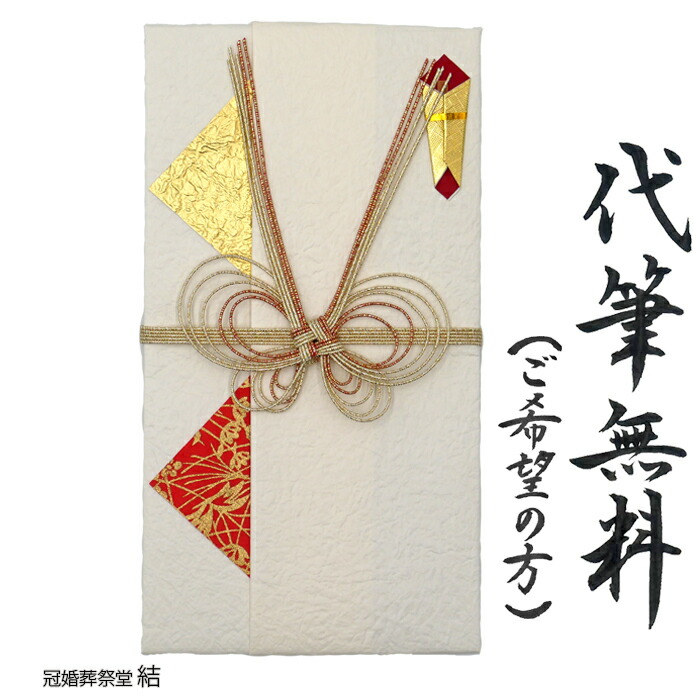 代筆無料
（ご希望の方）
冠婚葬祭堂 結